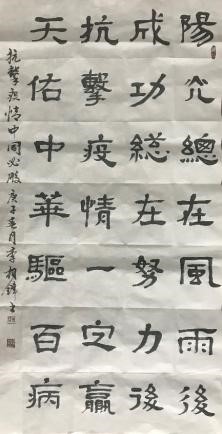 陽光總在風雨後
成功総在努力後
抗擊疫情一定贏
天佑中華驅百病
抗擊疫情中国必胜庚子春月李相锋书